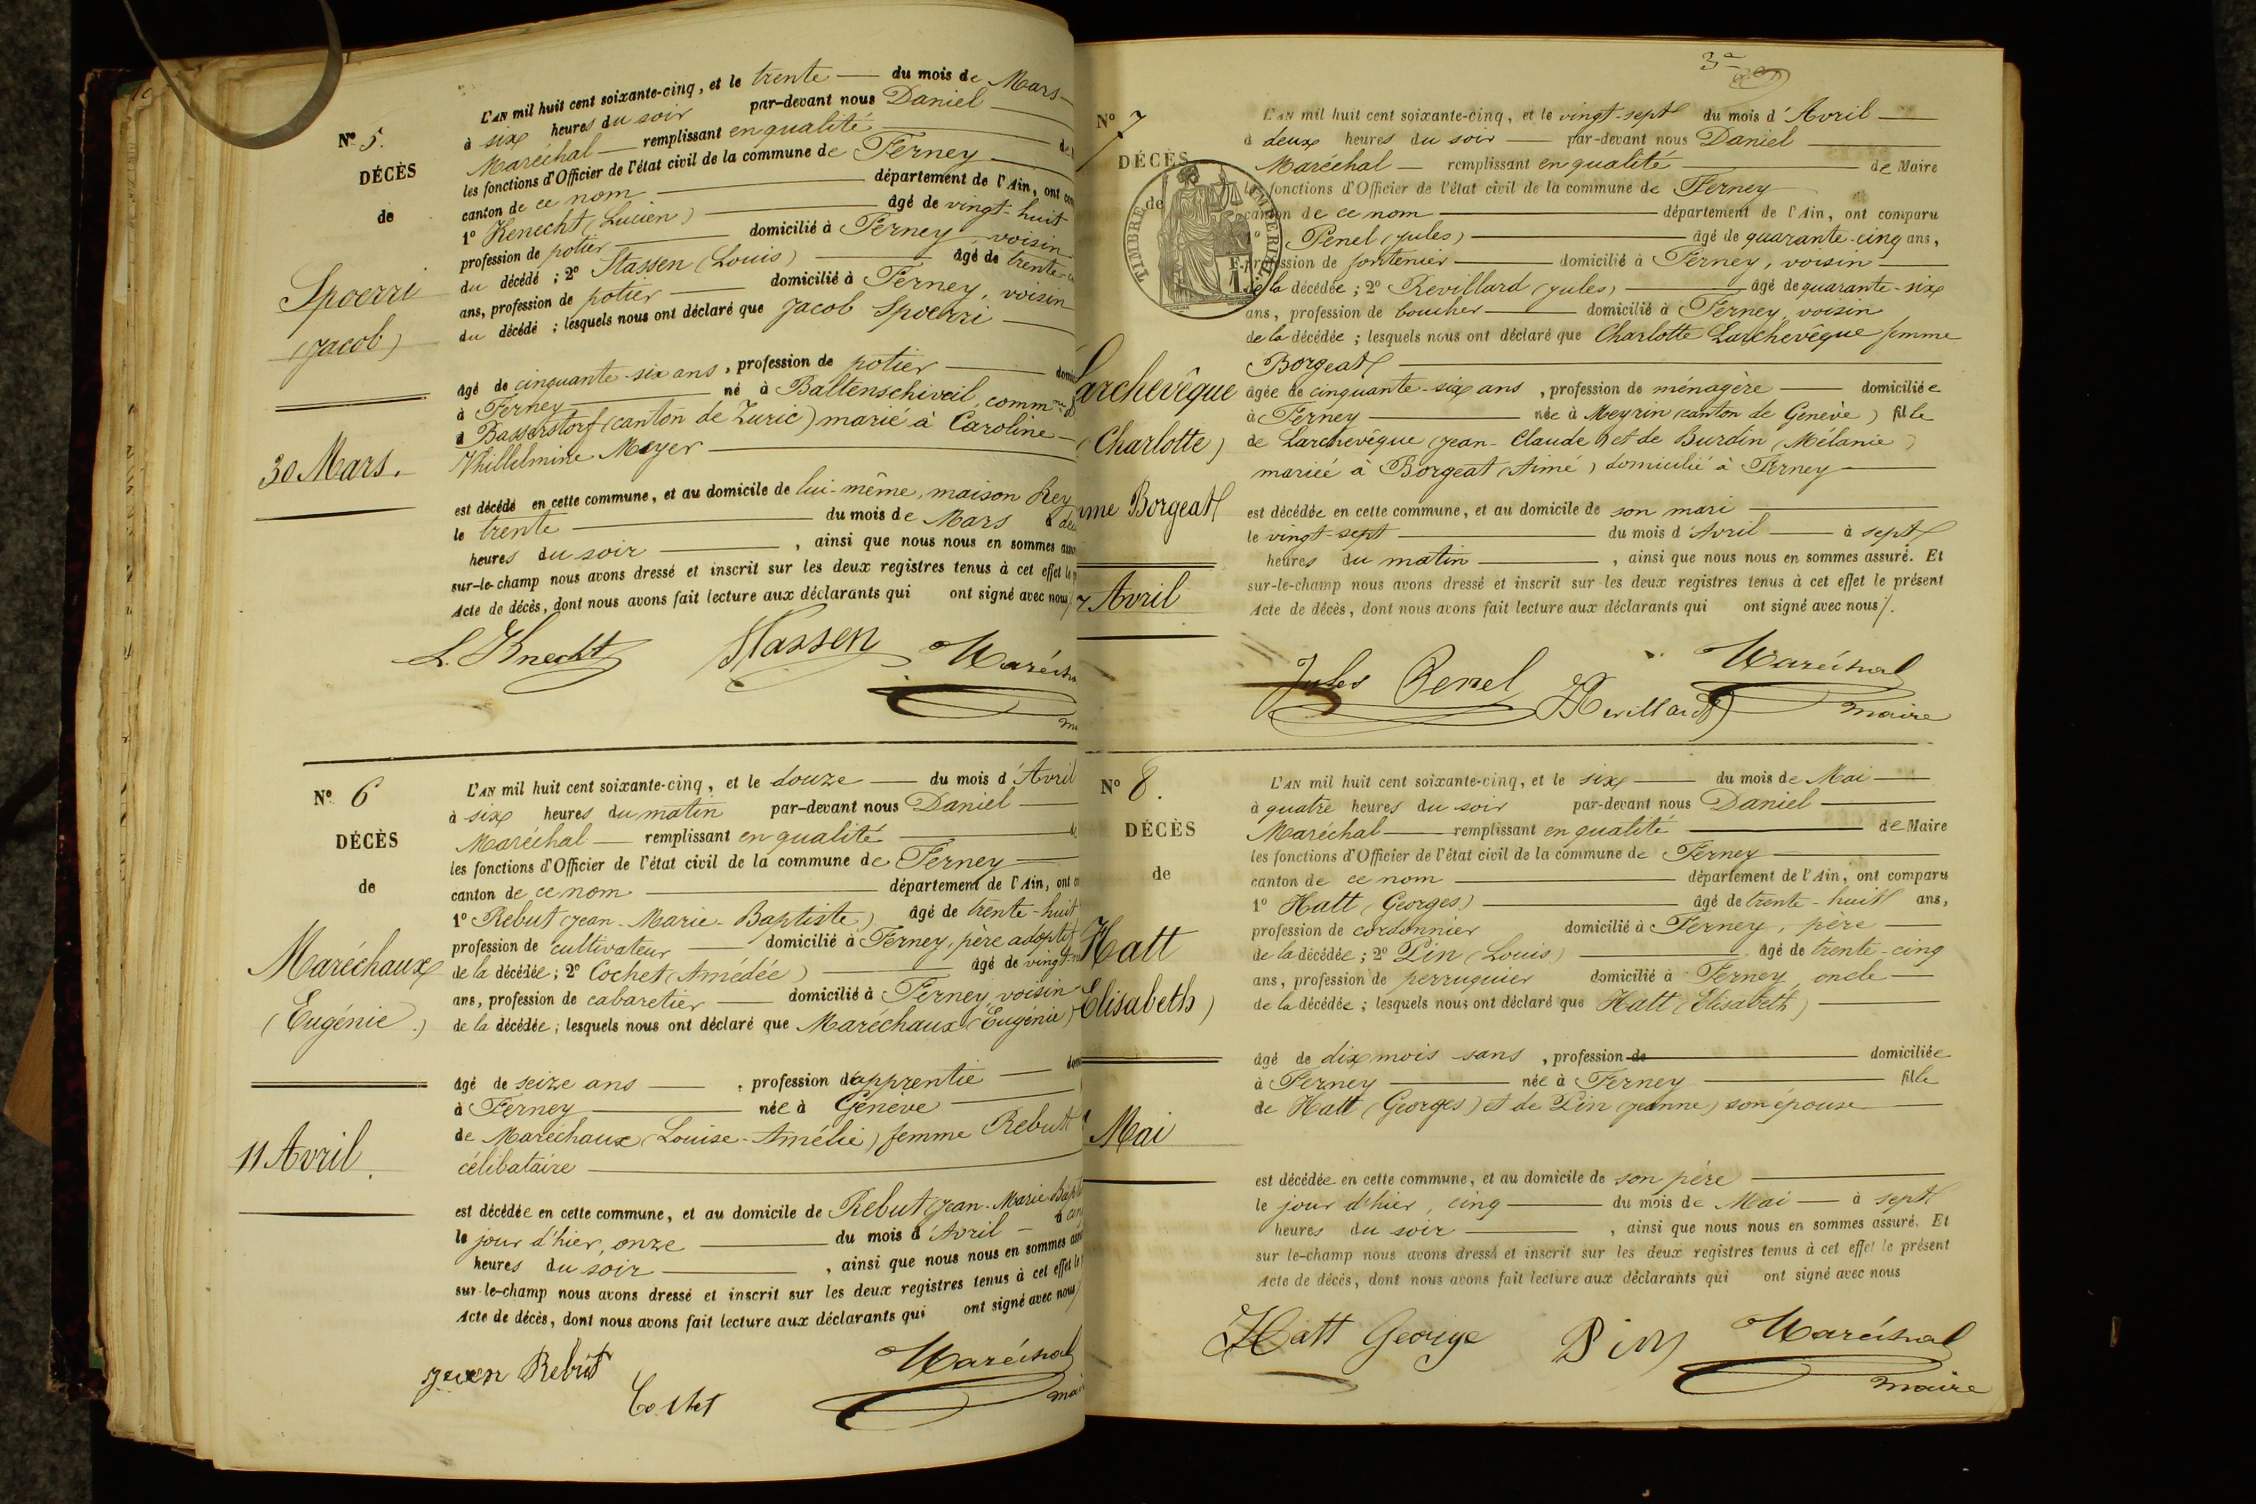 Nº 5.
DÉCÈS
de
Spoerri
(Jacob)
30 Mars.
L'AN mil huit cent soixante-cinq, et le trente du mois de Mars
à six heures du soir par-devant nous Daniel
Maréchal remplissant en qualité
les fonctions d'Officier de l'état civil de la commune de Ferney
canton de ce nom département de l'Ain, ont
1º Kenecht (Lucien) âgé de vingt-huit
profession de potier domicilié à Ferney, voisin
du décédé ; 2º Stassen (Louis) âgé de trente
ans, profession de potier domicilié à Ferney, voisin
du décédé ; lesquels nous ont déclaré que Jacob Spoerri
âgé de cinquante-six ans, profession de potier
à Ferney né à Baltenschiveil, comm
à Basserstorf (canton de Zuric) marié à Caroline
Whillelmine Meyer
est décédé en cette commune, et au domicile de lui-même, maison Rey
le trente du mois de Mars à
heures du soir, ainsi que nous nous en sommes
sur-le-champ nous avons dressé et inscrit sur les deux registres tenus à cet effet le
Acte de décès, dont nous avons fait lecture aux déclarants qui ont signé avec nous
L. Knecht Stassen Maréchal
Nº 6
DÉCÈS
de
Maréchaux
(Eugénie)
11 Avril.
L'AN mil huit cent soixante-cinq, et le douze du mois d'Avril
à six heures du matin par-devant nous Daniel
Maréchal remplissant en qualité
les fonctions d'Officier de l'état civil de la commune de Ferney
canton de ce nom département de l'Ain, ont
1º Rebut (Jean-Marie-Baptiste) âgé de trente-huit
profession de cultivateur domicilié à Ferney, père adoptif
de la décédée ; 2º Cochet (Amédée) âgé de
ans, profession de cabaretier domicilié à Ferney, voisin
de la décédée ; lesquels nous ont déclaré que Maréchaux (Eugénie)
âgé de seize ans, profession d'apprentie
à Ferney née à Genève
de Maréchaux (Louise-Amélie) femme Rebut
célibataire
est décédée en cette commune, et au domicile de Rebut Jean-Marie
le jour d'hier, onze du mois d'Avril à
heures du soir, ainsi que nous nous en sommes
sur-le-champ nous avons dressé et inscrit sur les deux registres tenus à cet effet le
Acte de décès, dont nous avons fait lecture aux déclarants qui ont signé avec nous
Rebut Cochet Maréchal
3e
Nº 7
DÉCÈS
de
TIMBRE IMPERIAL
Larchevêque
(Charlotte)
Borgeat
Avril
L'AN mil huit cent soixante-cinq, et le vingt-sept du mois d'Avril
à deux heures du soir par-devant nous Daniel
Maréchal remplissant en qualité de Maire
les fonctions d'Officier de l'état civil de la commune de Ferney
canton de ce nom département de l'Ain, ont comparu
1º Penel (Jules) âgé de quarante-cinq ans,
profession de fontenier domicilié à Ferney, voisin
de la décédée ; 2º Revillard (Jules) âgé de quarante-six
ans, profession de boucher domicilié à Ferney, voisin
de la décédée ; lesquels nous ont déclaré que Charlotte Larchevêque femme
Borgeat
âgée de cinquante-six ans, profession de ménagère domiciliée
à Ferney née à Meyrin (canton de Genève) fille
de Larchevêque (Jean-Claude) et de Burdin (Mélanie)
mariée à Borgeat (Aimé) domicilié à Ferney
est décédée en cette commune, et au domicile de son mari
le vingt-sept du mois d'Avril à sept
heures du matin, ainsi que nous nous en sommes assuré. Et
sur-le-champ nous avons dressé et inscrit sur les deux registres tenus à cet effet le présent
Acte de décès, dont nous avons fait lecture aux déclarants qui ont signé avec nous /.
Jules Penel Revillard Maréchal
maire
Nº 8.
DÉCÈS
de
Hatt
Elisabeth)
Mai
L'AN mil huit cent soixante-cinq, et le six du mois de Mai
à quatre heures du soir par-devant nous Daniel
Maréchal remplissant en qualité de Maire
les fonctions d'Officier de l'état civil de la commune de Ferney
canton de ce nom département de l'Ain, ont comparu
1º Hatt (Georges) âgé de trente-huit ans,
profession de cordonnier domicilié à Ferney, père
de la décédée ; 2º Pin (Louis) âgé de trente-cinq
ans, profession de perruquier domicilié à Ferney oncle
de la décédée ; lesquels nous ont déclaré que Hatt (Elisabeth)
âgé de dix mois sans, profession de domiciliée
à Ferney née à Ferney fille
de Hatt (Georges) et de Pin (Jeanne) son épouse
est décédée en cette commune, et au domicile de son père
le jour d'hier, cinq du mois de Mai à sept
heures du soir, ainsi que nous nous en sommes assuré. Et
sur-le-champ nous avons dressé et inscrit sur les deux registres tenus à cet effet le présent
Acte de décès, dont nous avons fait lecture aux déclarants qui ont signé avec nous
Hatt George Pin Maréchal
maire